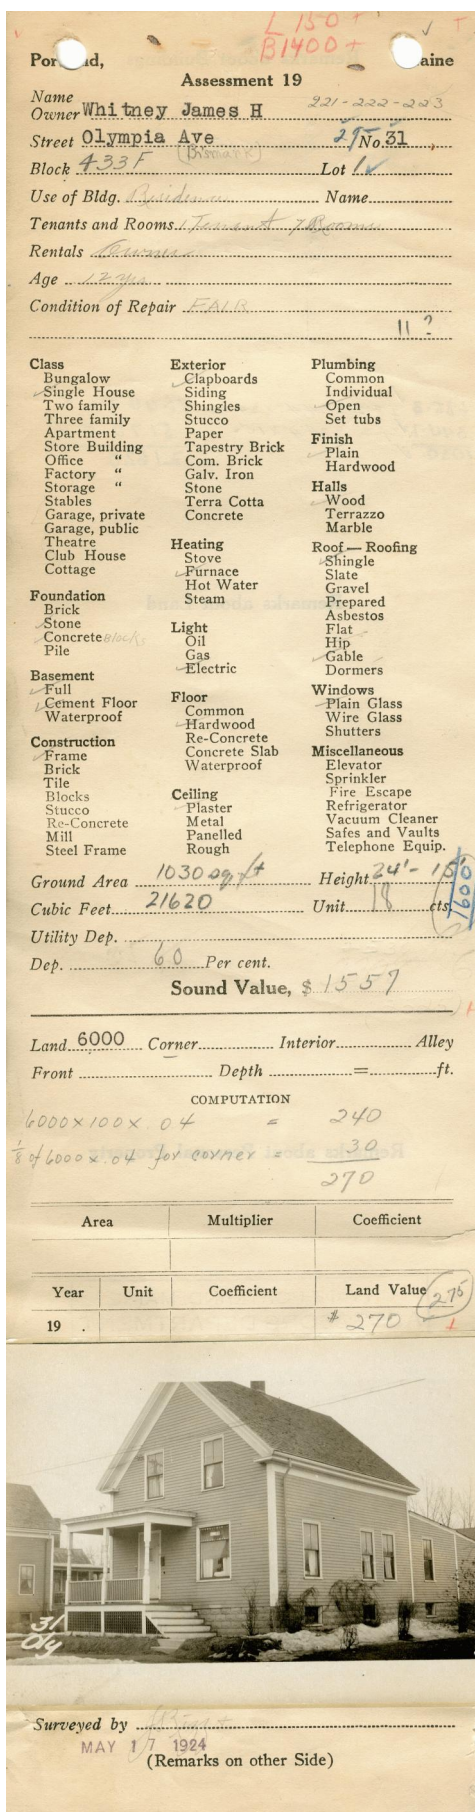 L 150 +
B 1400 +
Portland, Maine
Assessment 19
Name
Owner Whitney James H 221-222-223
Street Olympia Ave (Bismark) 29 No. 31
Block 433 F Lot 1
Use of Bldg. Residence Name
Tenants and Rooms 1 Tenant 7 Rooms
Rentals Owner
Age 12 yrs
Condition of Repair FAIR
11 ?
Class
Bungalow
Single House
Two family
Three family
Apartment
Store Building
Office "
Factory "
Storage "
Stables
Garage, private
Garage, public
Theatre
Club House
Cottage
Foundation
Brick
Stone
Concrete Blocks
Pile
Basement
Full
Cement Floor
Waterproof
Construction
Frame
Brick
Tile
Blocks
Stucco
Re-Concrete
Mill
Steel Frame
Exterior
Clapboards
Siding
Shingles
Stucco
Paper
Tapestry Brick
Com. Brick
Galv. Iron
Stone
Terra Cotta
Concrete
Heating
Stove
Furnace
Hot Water
Steam
Light
Oil
Gas
Electric
Floor
Common
Hardwood
Re-Concrete
Concrete Slab
Waterproof
Ceiling
Plaster
Metal
Panelled
Rough
Plumbing
Common
Individual
Open
Set tubs
Finish
Plain
Hardwood
Halls
Wood
Terrazzo
Marble
Roof — Roofing
Shingle
Slate
Gravel
Prepared
Asbestos
Flat
Hip
Gable
Dormers
Windows
Plain Glass
Wire Glass
Shutters
Miscellaneous
Elevator
Sprinkler
Fire Escape
Refrigerator
Vacuum Cleaner
Safes and Vaults
Telephone Equip.
Ground Area 1030 sq. ft Height 24' - 15'
Cubic Feet 21620 Unit 18 cts.
1600
Utility Dep.
Dep. 60 Per cent.
Sound Value, $ 1557
Land 6000 Corner Interior Alley
Front Depth = ft.
COMPUTATION
6000 x 100 x .04 = 240
1/8 of 6000 x .04 for corner = 30
270
Area Multiplier Coefficient
Year Unit Coefficient Land Value 275
19 . $ 270
31
Oly
Surveyed by
MAY 17 1924
(Remarks on other Side)